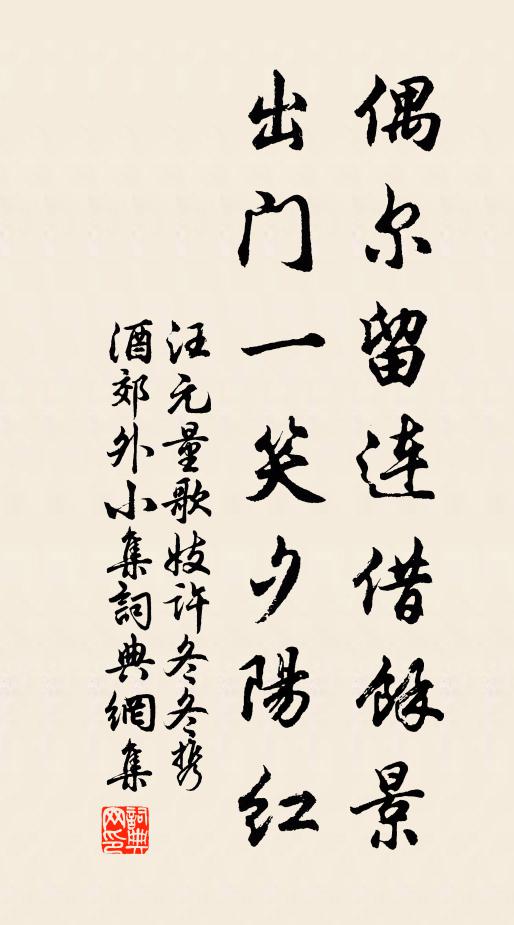 偶尔留连借餘景
出门一笑夕陽红
汪元量歌妓许冬冬携
酒郊外小集詞典網集
詞典
网印